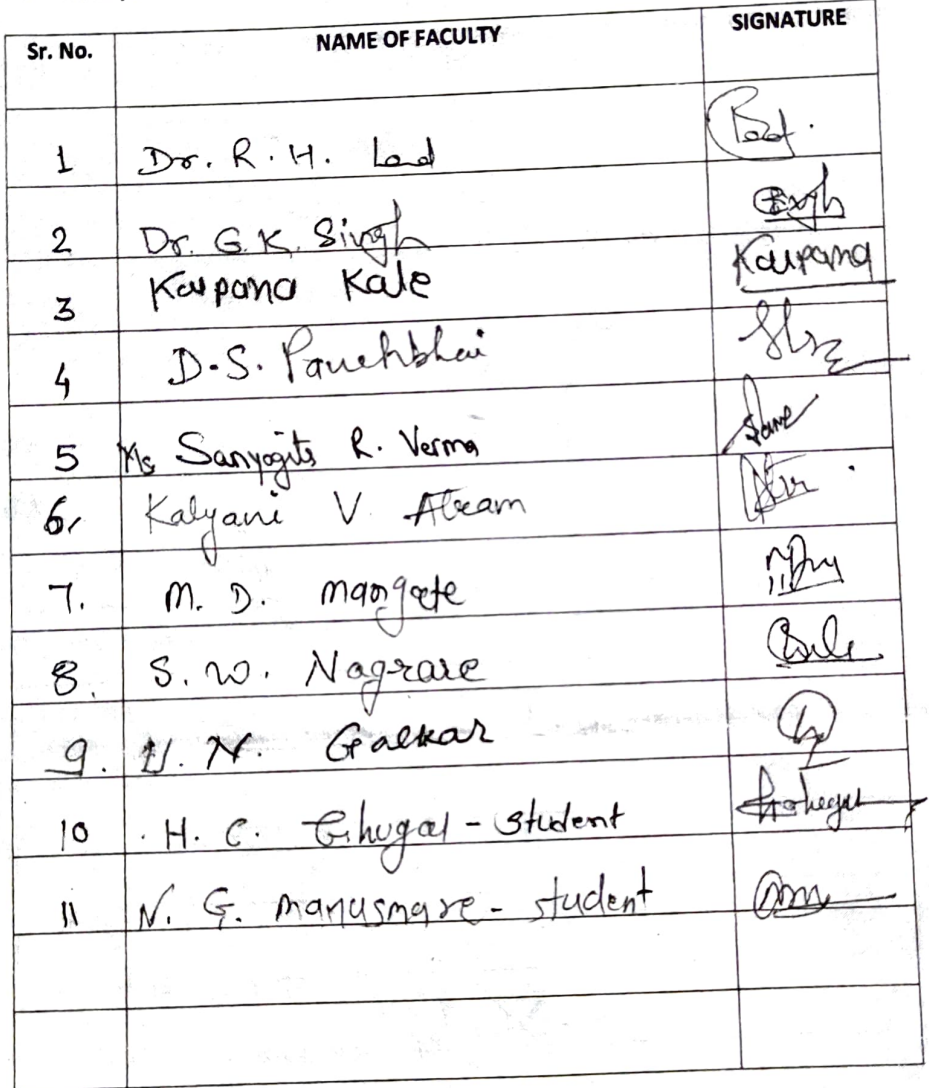 Sr. No. NAME OF FACULTY SIGNATURE
1 Dr. R. H. Lad
2 Dr. G. K. Singh
3 Kalpana Kale Kalpana
4 D. S. Panchbhai
5 Ms Sanyogita R. Verma
6. Kalyani V Atram
7. M. D. Mangate
8. S. W. Nagrare
9. U. N. Galkar
10 H. C. Ghugal - student
11 N. G. Manusmare - student